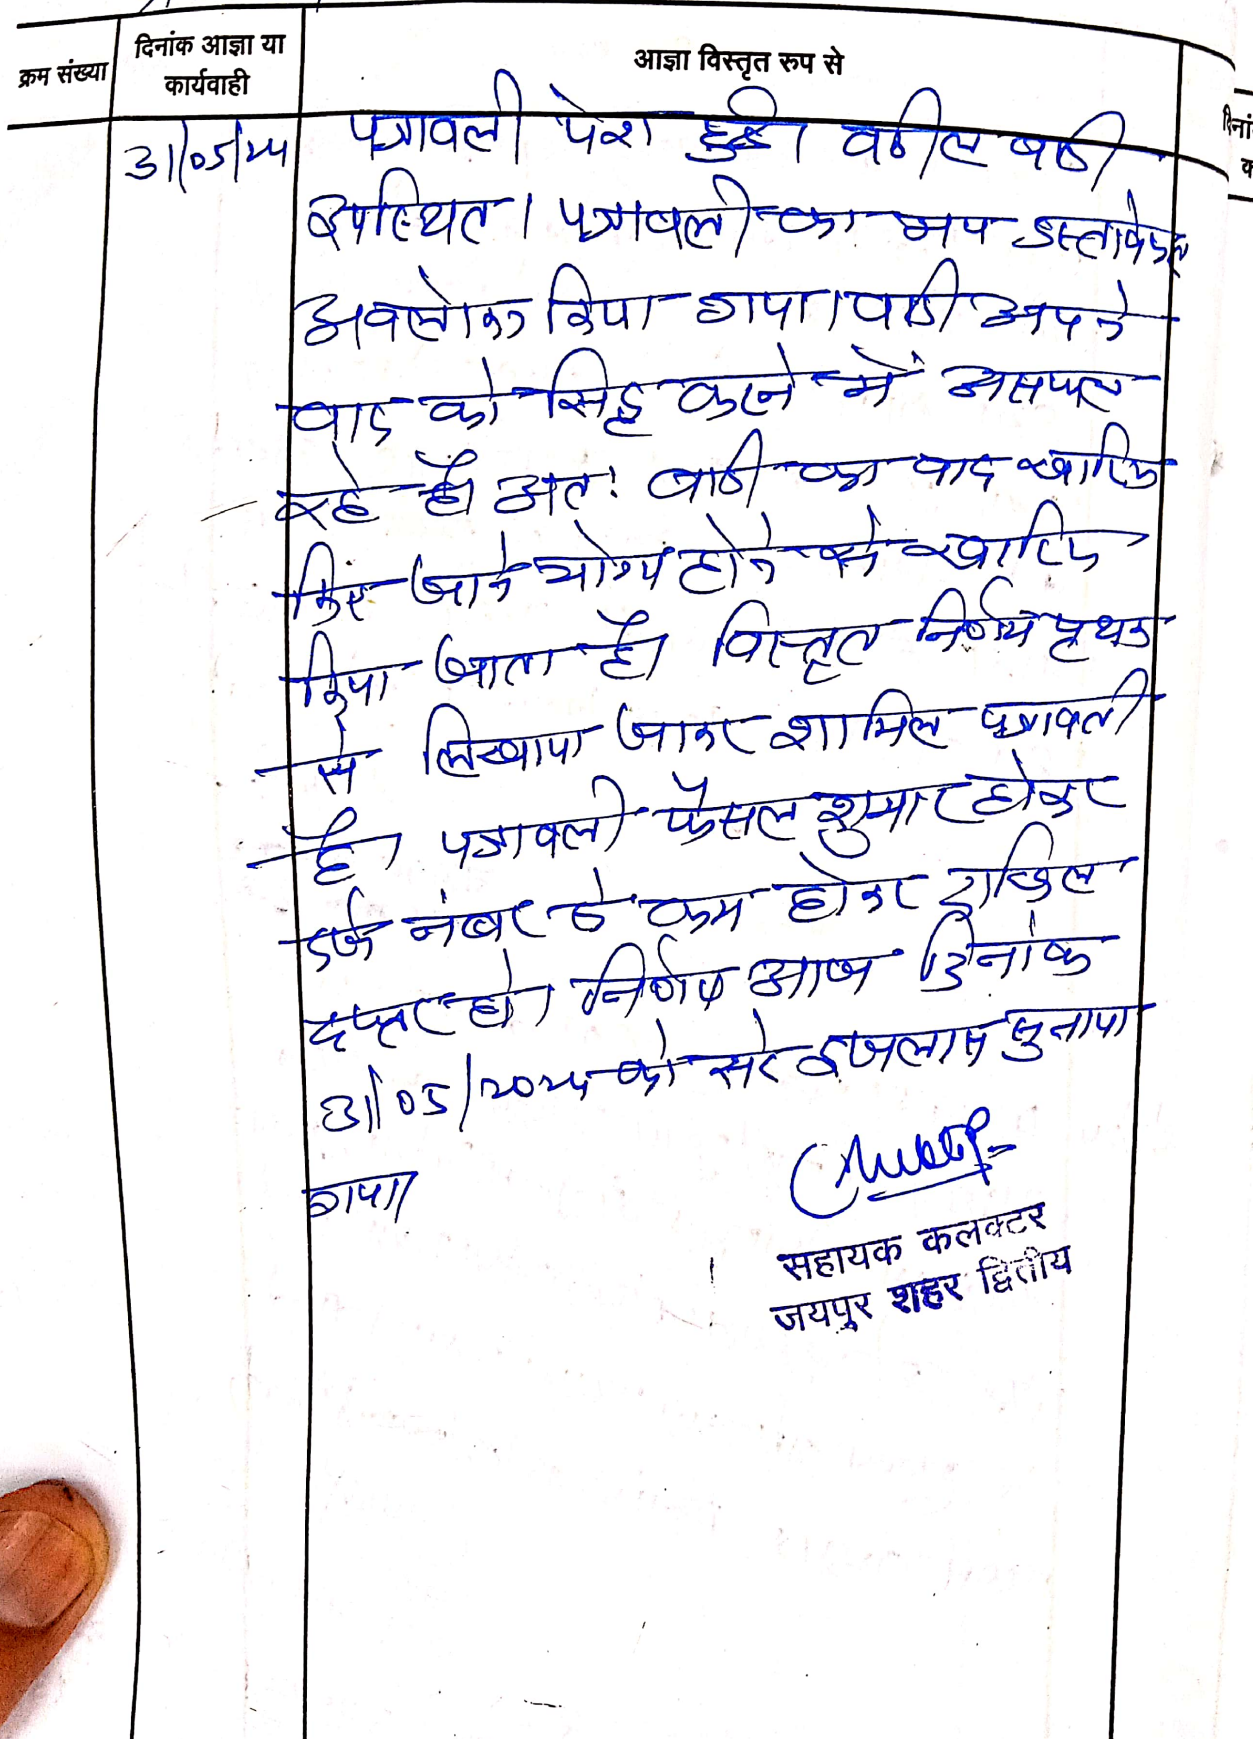 क्रम संख्या
दिनांक आज्ञा या
कार्यवाही
आज्ञा विस्तृत रुप से
दिनां
क
31/05/24 पत्रावली पेश हुई। वकील वादी
उपस्थित। पत्रावली का मय दस्तावेज
अवलोकन किया गया। वादी अपने
वाद को सिद्ध करने में असफल
रहे है। अत: वादी का वाद खारिज
किए जाने योग्य होने से खारिज
किया जाता है। विस्तृत निर्णय पृथक
से लिखाया जाकर शामिल पत्रावली
है। पत्रावली फैसल शुमार होकर
दर्ज नंबर से कम होकर दाखिल
दफ्तर हो। निर्णय आज दिनांक
31/05/2024 को सरे इजलास सुनाया
गया।
सहायक कलक्टर
जयपुर शहर द्वितीय